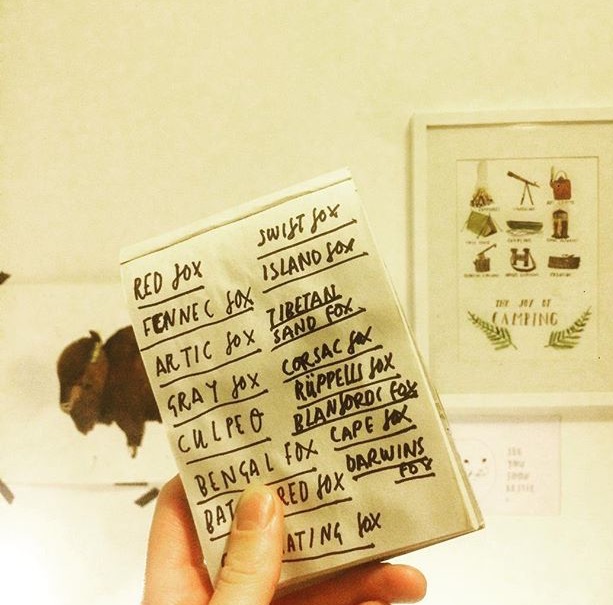 RED FOX
FENNEC FOX
ARTIC FOX
GRAY FOX
CULPEO
BENGAL FOX
BAT RED FOX
ATING FOX
SWIFT FOX
ISLAND FOX
TIBETAN
SAND FOX
CORSAC FOX
RÜPPELLS FOX
BLANFORDS FOX
CAPE FOX
DARWINS
FOX
THE JOY OF
CAMPING
SEE
YOU